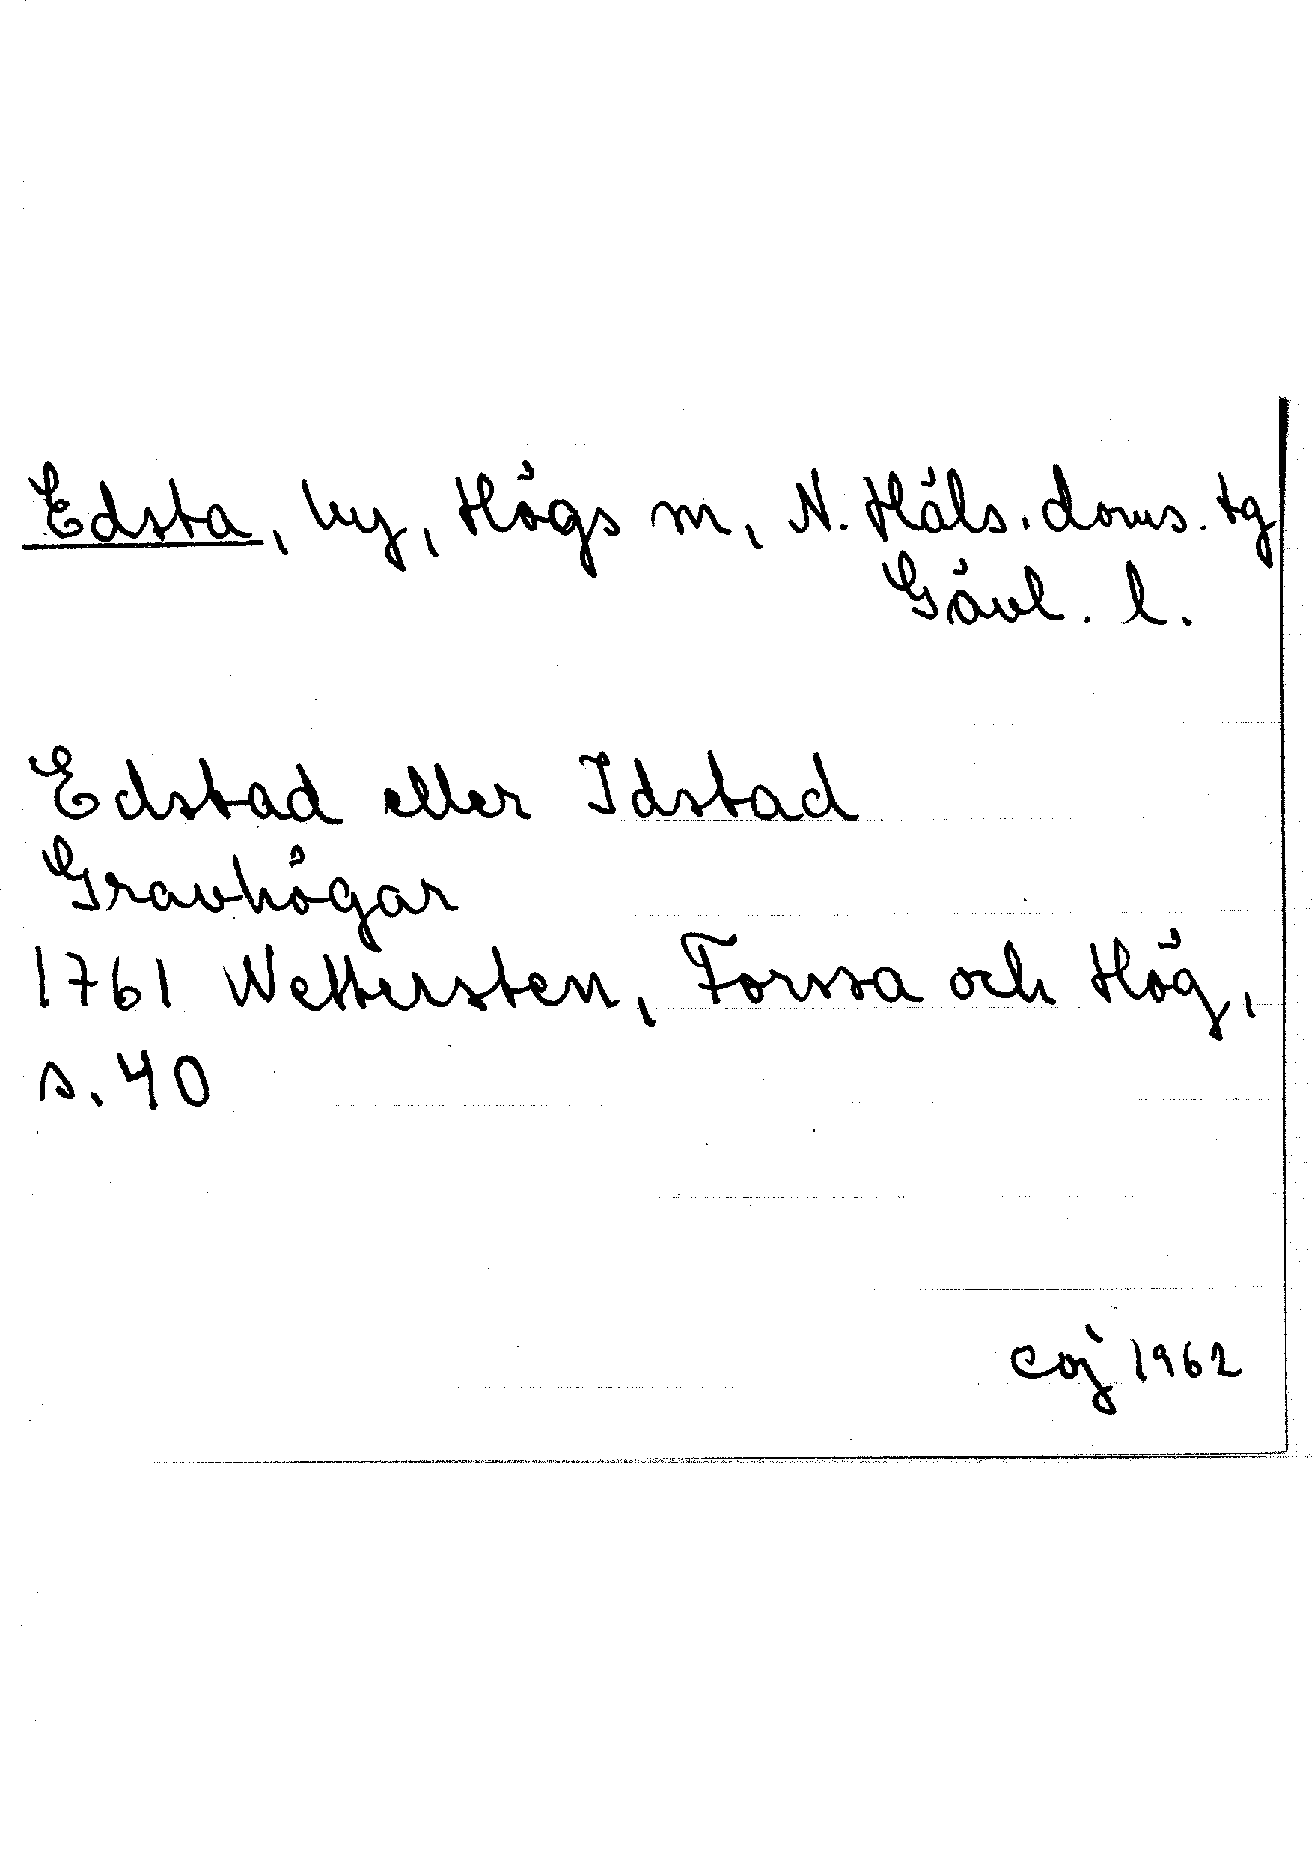 Edsta, by, Högs sn, N. Häls. doms. tg
Gävl. l.
Edstad eller Idstad
Gravhögar
1761 Wettersten, Forssa och Hög,
s. 40
coj 1962